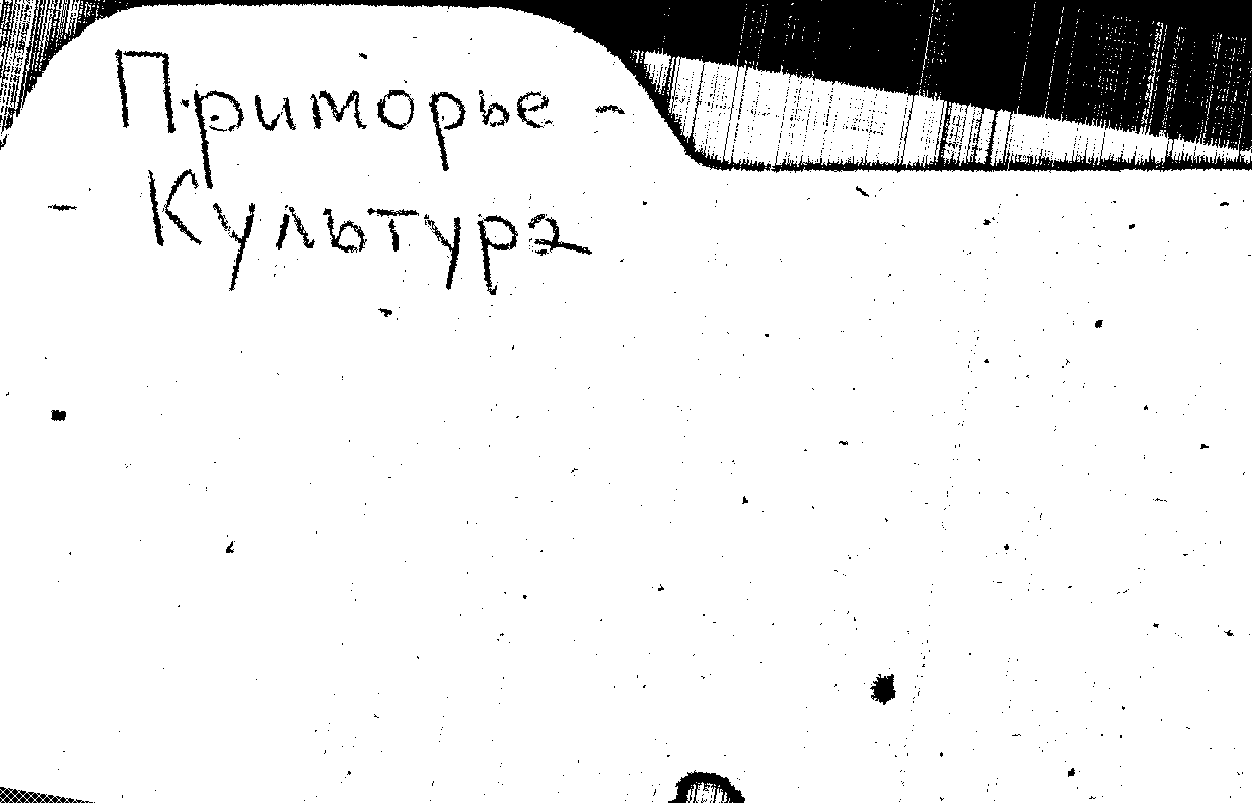 Приморье -
- Культура